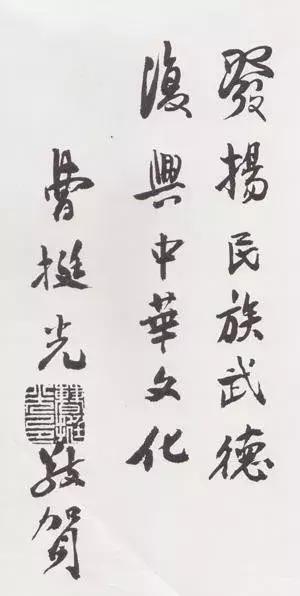 發揚民族武德
復興中華文化
曹挺光
敬賀